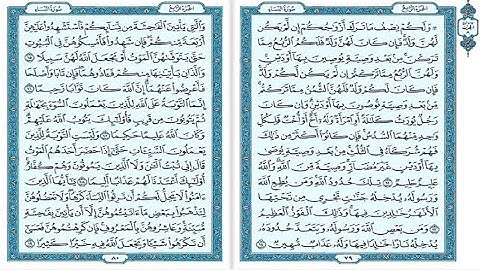 الجزء الرابع
سورة النساء
۞ وَلَكُمْ نِصْفُ مَا تَرَكَ أَزْوَٰجُكُمْ إِن لَّمْ يَكُن
لَّهُنَّ وَلَدٌ فَإِن كَانَ لَهُنَّ وَلَدٌ فَلَكُمُ ٱلرُّبُعُ مِمَّا
تَرَكْنَ مِنۢ بَعْدِ وَصِيَّةٍ يُوصِينَ بِهَآ أَوْ دَيْنٍ
وَلَهُنَّ ٱلرُّبُعُ مِمَّا تَرَكْتُمْ إِن لَّمْ يَكُن لَّكُمْ وَلَدٌ
فَإِن كَانَ لَكُمْ وَلَدٌ فَلَهُنَّ ٱلثُّمُنُ مِمَّا تَرَكْتُم
مِّنۢ بَعْدِ وَصِيَّةٍ تُوصُونَ بِهَآ أَوْ دَيْنٍ وَإِن كَانَ
رَجُلٌ يُورَثُ كَلَٰلَةً أَوِ ٱمْرَأَةٌ وَلَهُۥٓ أَخٌ أَوْ أُخْتٌ فَلِكُلِّ
وَٰحِدٍ مِّنْهُمَا ٱلسُّدُسُ فَإِن كَانُوٓا۟ أَكْثَرَ مِن ذَٰلِكَ
فَهُمْ شُرَكَآءُ فِى ٱلثُّلُثِ مِنۢ بَعْدِ وَصِيَّةٍ يُوصَىٰ
بِهَآ أَوْ دَيْنٍ غَيْرَ مُضَآرٍّ وَصِيَّةً مِّنَ ٱللَّهِ وَٱللَّهُ
عَلِيمٌ حَلِيمٌ ١٢ تِلْكَ حُدُودُ ٱللَّهِ وَمَن يُطِعِ ٱللَّهَ
وَرَسُولَهُۥ يُدْخِلْهُ جَنَّٰتٍ تَجْرِى مِن تَحْتِهَا
ٱلْأَنْهَٰرُ خَٰلِدِينَ فِيهَا وَذَٰلِكَ ٱلْفَوْزُ ٱلْعَظِيمُ
١٣ وَمَن يَعْصِ ٱللَّهَ وَرَسُولَهُۥ وَيَتَعَدَّ حُدُودَهُۥ
يُدْخِلْهُ نَارًا خَٰلِدًا فِيهَا وَلَهُۥ عَذَابٌ مُّهِينٌ ١٤
٧٩
الجزء الرابع
سورة النساء
وَٱلَّٰتِى يَأْتِينَ ٱلْفَٰحِشَةَ مِن نِّسَآئِكُمْ فَٱسْتَشْهِدُوا۟ عَلَيْهِنَّ
أَرْبَعَةً مِّنكُمْ فَإِن شَهِدُوا۟ فَأَمْسِكُوهُنَّ فِى ٱلْبُيُوتِ
حَتَّىٰ يَتَوَفَّىٰهُنَّ ٱلْمَوْتُ أَوْ يَجْعَلَ ٱللَّهُ لَهُنَّ سَبِيلًا ١٥
وَٱلَّذَانِ يَأْتِيَٰنِهَا مِنكُمْ فَـَٔاذُوهُمَا فَإِن تَابَا وَأَصْلَحَا
فَأَعْرِضُوا۟ عَنْهُمَآ إِنَّ ٱللَّهَ كَانَ تَوَّابًا رَّحِيمًا ١٦
إِنَّمَا ٱلتَّوْبَةُ عَلَى ٱللَّهِ لِلَّذِينَ يَعْمَلُونَ ٱلسُّوٓءَ بِجَهَٰلَةٍ
ثُمَّ يَتُوبُونَ مِن قَرِيبٍ فَأُو۟لَٰٓئِكَ يَتُوبُ ٱللَّهُ عَلَيْهِمْ
وَكَانَ ٱللَّهُ عَلِيمًا حَكِيمًا ١٧ وَلَيْسَتِ ٱلتَّوْبَةُ لِلَّذِينَ
يَعْمَلُونَ ٱلسَّيِّـَٔاتِ حَتَّىٰٓ إِذَا حَضَرَ أَحَدَهُمُ ٱلْمَوْتُ
قَالَ إِنِّى تُبْتُ ٱلْـَٰٔنَ وَلَا ٱلَّذِينَ يَمُوتُونَ وَهُمْ كُفَّارٌ
أُو۟لَٰٓئِكَ أَعْتَدْنَا لَهُمْ عَذَابًا أَلِيمًا ١٨ يَٰٓأَيُّهَا ٱلَّذِينَ
ءَامَنُوا۟ لَا يَحِلُّ لَكُمْ أَن تَرِثُوا۟ ٱلنِّسَآءَ كَرْهًا وَلَا تَعْضُلُوهُنَّ
لِتَذْهَبُوا۟ بِبَعْضِ مَآ ءَاتَيْتُمُوهُنَّ إِلَّآ أَن يَأْتِينَ بِفَٰحِشَةٍ
مُّبَيِّنَةٍ وَعَاشِرُوهُنَّ بِٱلْمَعْرُوفِ فَإِن كَرِهْتُمُوهُنَّ فَعَسَىٰٓ
أَن تَكْرَهُوا۟ شَيْـًٔا وَيَجْعَلَ ٱللَّهُ فِيهِ خَيْرًا كَثِيرًا ١٩
٨٠